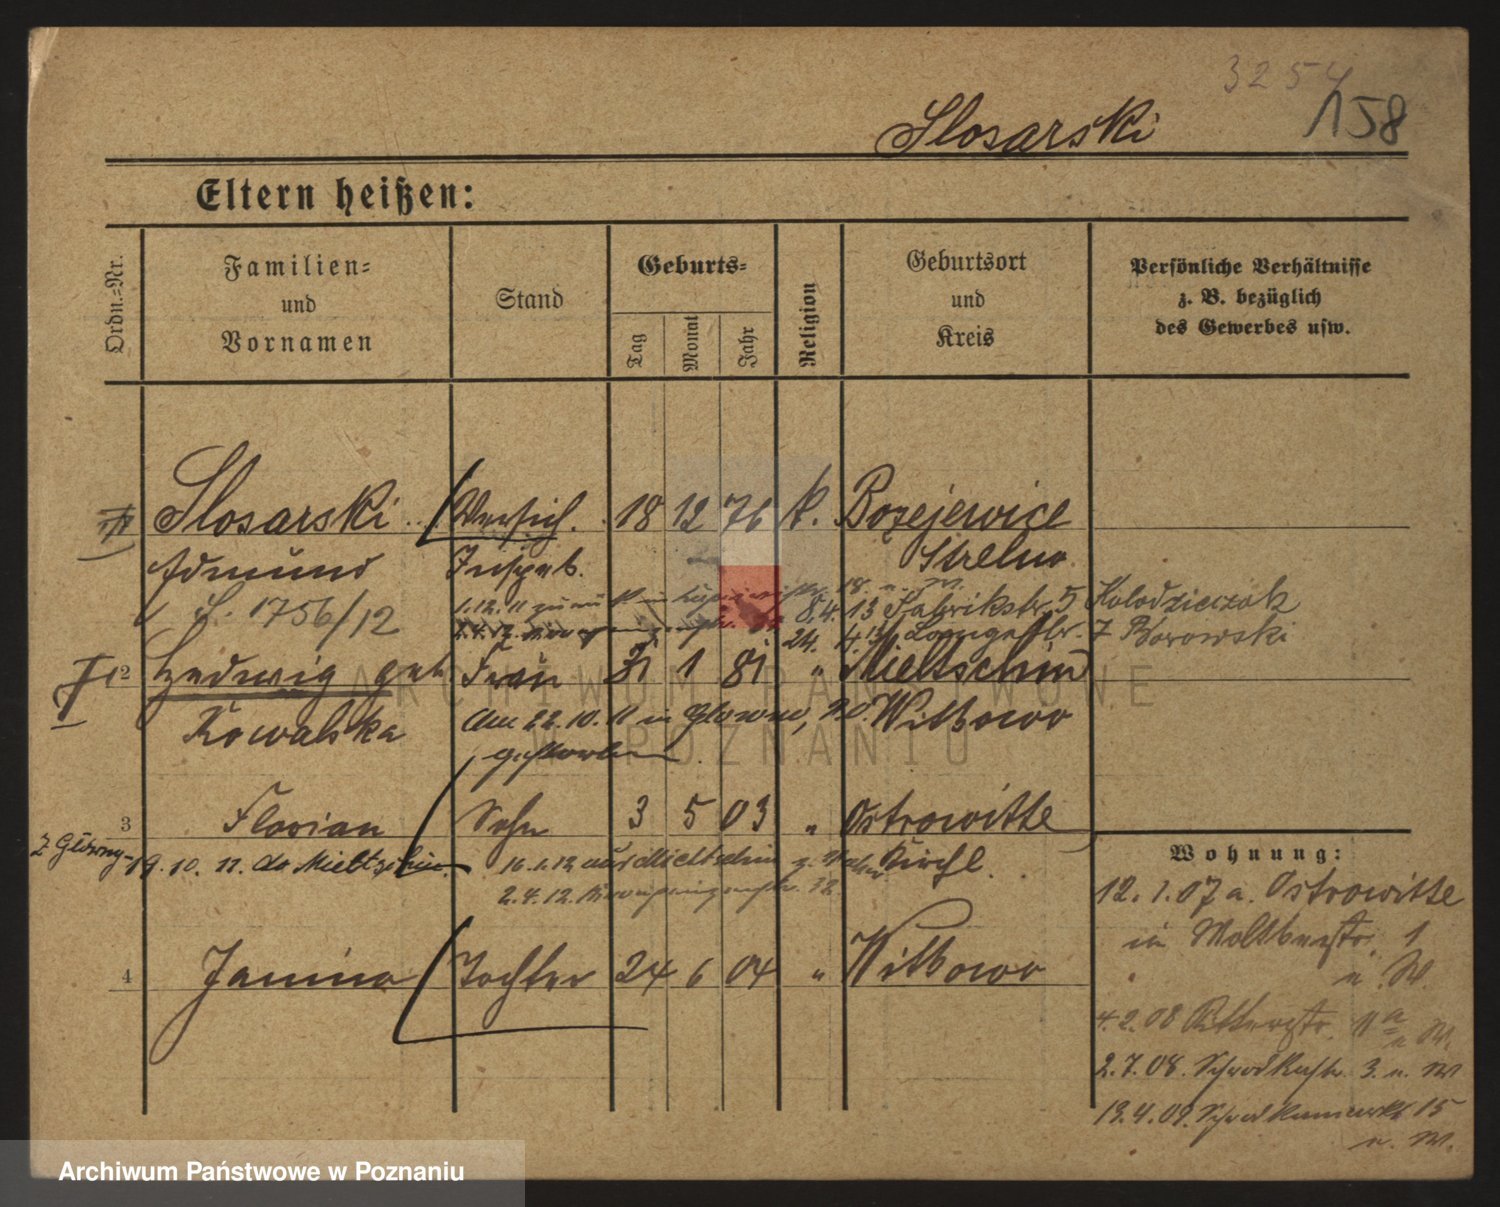 3254
158
Slosarski
Eltern heißen:
Ordn.-Nr.
Familien- und Vornamen
Stand
Geburts-
Tag
Monat
Jahr
Religion
Geburtsort und Kreis
Persönliche Verhältnisse z. B. bezüglich des Gewerbes usw.
Slosarski Versich. 18 12 76 k. Bozejewice
Edmund Inspekt. Strelno
1756/12
8.4.13 Fabrikstr. 5 Kolodzieczak
24. 4. 13 Langestr. 7 Borowski
2 Hedwig geb. Frau 31 1 81 " Mieltschin
Kowalska Am 22.10.11 in Glowno, Witkowo
gestorben.
3 Florian Sohn 3 5 03 " Ostrowitte
Z Glowny 19. 10. 11. do Mieltschin. 16.1.12 aus Mieltschin Kirchl.
2.4.12.
4 Janina Tochter 24 6 04 " Witkowo
Wohnung:
12. 1. 07 a. Ostrowitte
in Moltkestr. 1
u. W.
4.2.08 Ritterstr. 11a
u. W.
2.7.08. 3. u. W
19.4.09. 15
u. W.
ARCHIWUM PAŃSTWOWE
W POZNANIU
Archiwum Państwowe w Poznaniu